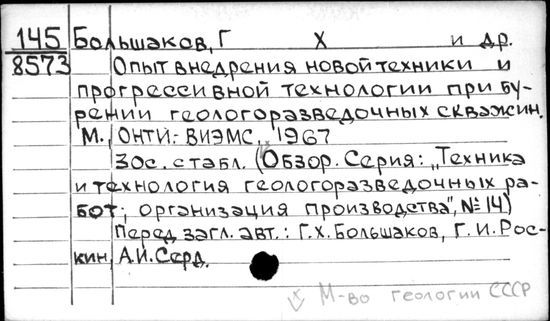 145 Большаков, Г Х и др.
8573 Опыт внедрения новой техники и
прогрессивной технологии при бу-
рении геологоразведочных скважин.
М., ОНТИ-ВИЭМС, 1967
30с. с табл. (Обзор. Серия: „Техника
и технология геологоразведочных ра-
бот; организация производства", №14)
Перед загл. авт.: Г.Х. Большаков, Г.И. Рос-
кин, А.И. Серд.
М-во геологии СССР